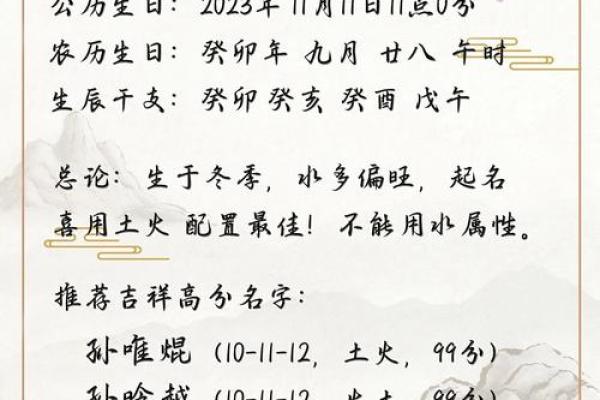 公历生日：2023年11月11日11点0分
农历生日：癸卯年 九月 廿八 午时
生辰干支：癸卯 癸亥 癸酉 戊午
总论：生于冬季，水多偏旺，起名
喜用土火 配置最佳！不能用水属性。
推荐吉祥高分名字：
孙唯焜（10-11-12，土火，99分）
孙晗越（10-11-12，火土，99分）